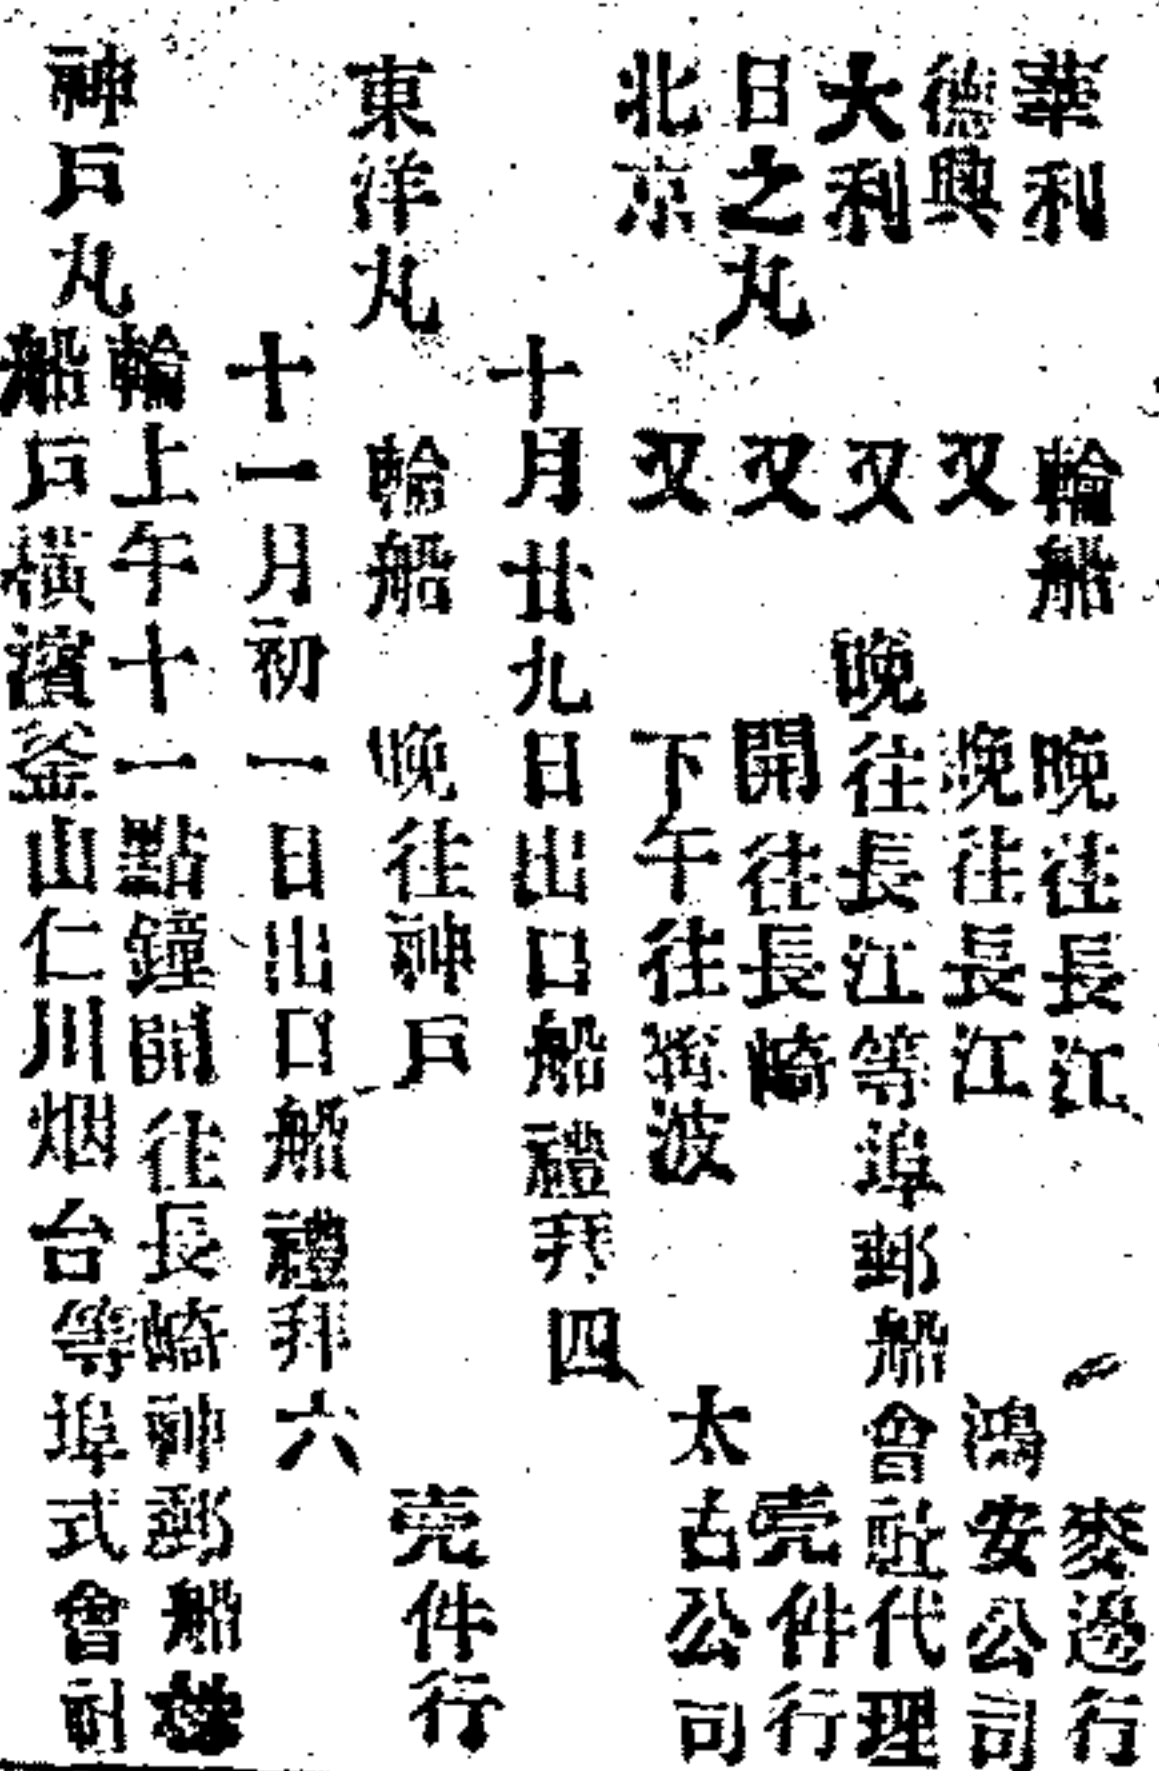 華利 輪船 晚往長江 麥邊行
德興 又 晚往長江 鴻安公司
大利 又 晚往長江等埠郵船會社代理
日之丸 又 開往長崎 壳件行
北京 又 下午往寗波 太古公司
十月廿九日出口船禮拜四
東洋丸 輪船 晚往神戶 壳件行
十一月初一日出口船禮拜六
神戶丸
輪上午十一點鐘開往長崎神郵船株
船戶橫濱釜山仁川烟台等埠式會社